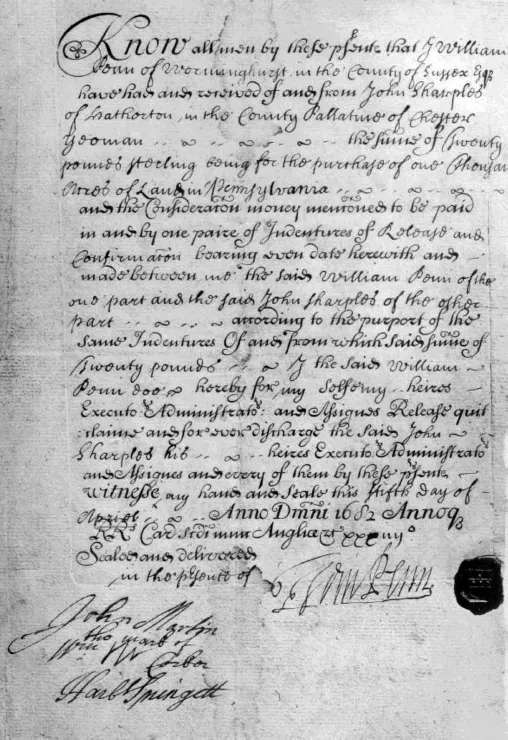 Know all men by these psents that I William
Penn of Worminghurst in the County of Sussex Esqr
have had and received of and from John Sharples
of Hatherton in the County Pallatine of Chester
Yeoman the sume of Twenty
pounds sterling being for the purchase of one Thousand
Acres of Land in Pennsylvania
and the Consideracon money mencioned to be paid
in and by one paire of Indentures of Release and
Confirmacon bearing even date herewith and
made between me the said William Penn of the
one part and the said John Sharples of the other
part according to the purport of the
same Indentures Of and from which said sume of
Twenty pounds I the said William
Penn doe hereby for my selfe my heires
Executors Administrators and Assignes Release quit
claime and for ever discharge the said John
Sharples his heires Executors Administrators
and Assignes and every of them by these psents
Witnesse my hand and Seale this fifth day of
Aprill Anno Dmni 1682 Annoq
RR Car scdi nunc Angliae &c xxxiiijo
Sealed and delivered
in the psents of
Wm Penn
John Martin
the mark of
Wm Corbor
Harbt Springett